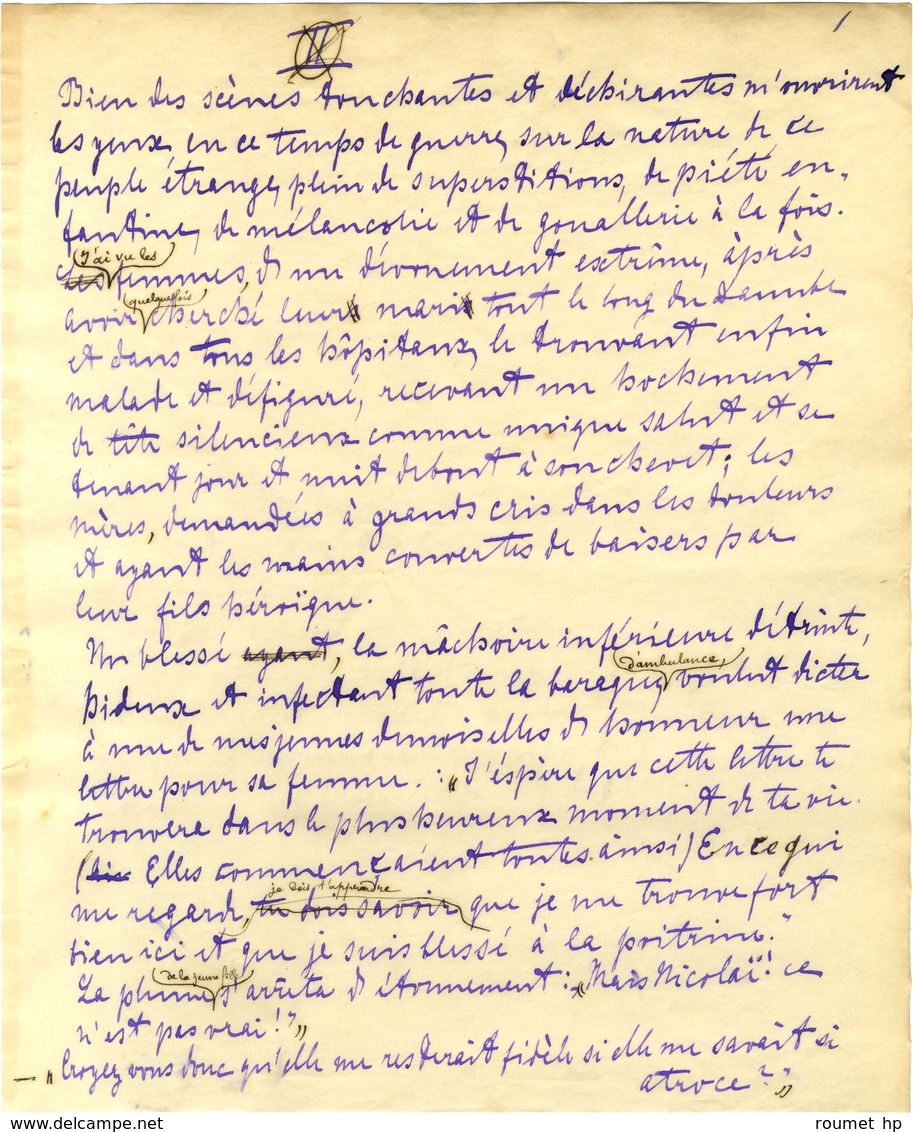 II
1
Bien des scènes touchantes et déchirantes m'ouvrirent
les yeux, en ce temps de guerre, sur la nature de ce
peuple étrange, plein de superstitions, de piété en-
fantine, de mélancolie et de gouallerie à la fois.
J'ai vu les
Les femmes, d'un dévouement extrême, àprès
quelquefois
avoir cherché leur mari tout le long du Danube
et dans tous les hôpitaux, le trouvant enfin
malade et défiguré, recevant un hochement
de tête silencieux comme unique salut et se
tenant jour et nuit debout à son chevet; les
mères, demandées à grands cris dans les douleurs
et ayant les mains couvertes de baisers par
leur fils héroïque.
Un blessé ayant, la mâchoire inférieure détruite,
d'ambulance,
hideux et infectant toute la baraque, voulut dicter
à une de mes jeunes demoiselles d'honneur une
lettre pour sa femme. : „J'éspère que cette lettre te
trouvera dans le plus heureux moment de ta vie.
(Elles commençaient toutes àinsi) En ce qui
je dois t'apprendre
me regarde, tu dois savoir que je me trouve fort
bien ici et que je suis blessé à la poitrine."
de la jeune fille
La plume s'arrêta d'étonnement: „Mais Nicolaï! ce
n'est pas vrai!"
— „Croyez vous donc qu'elle me resterait fidèle si elle me savait si
atroce?"
roumet hp